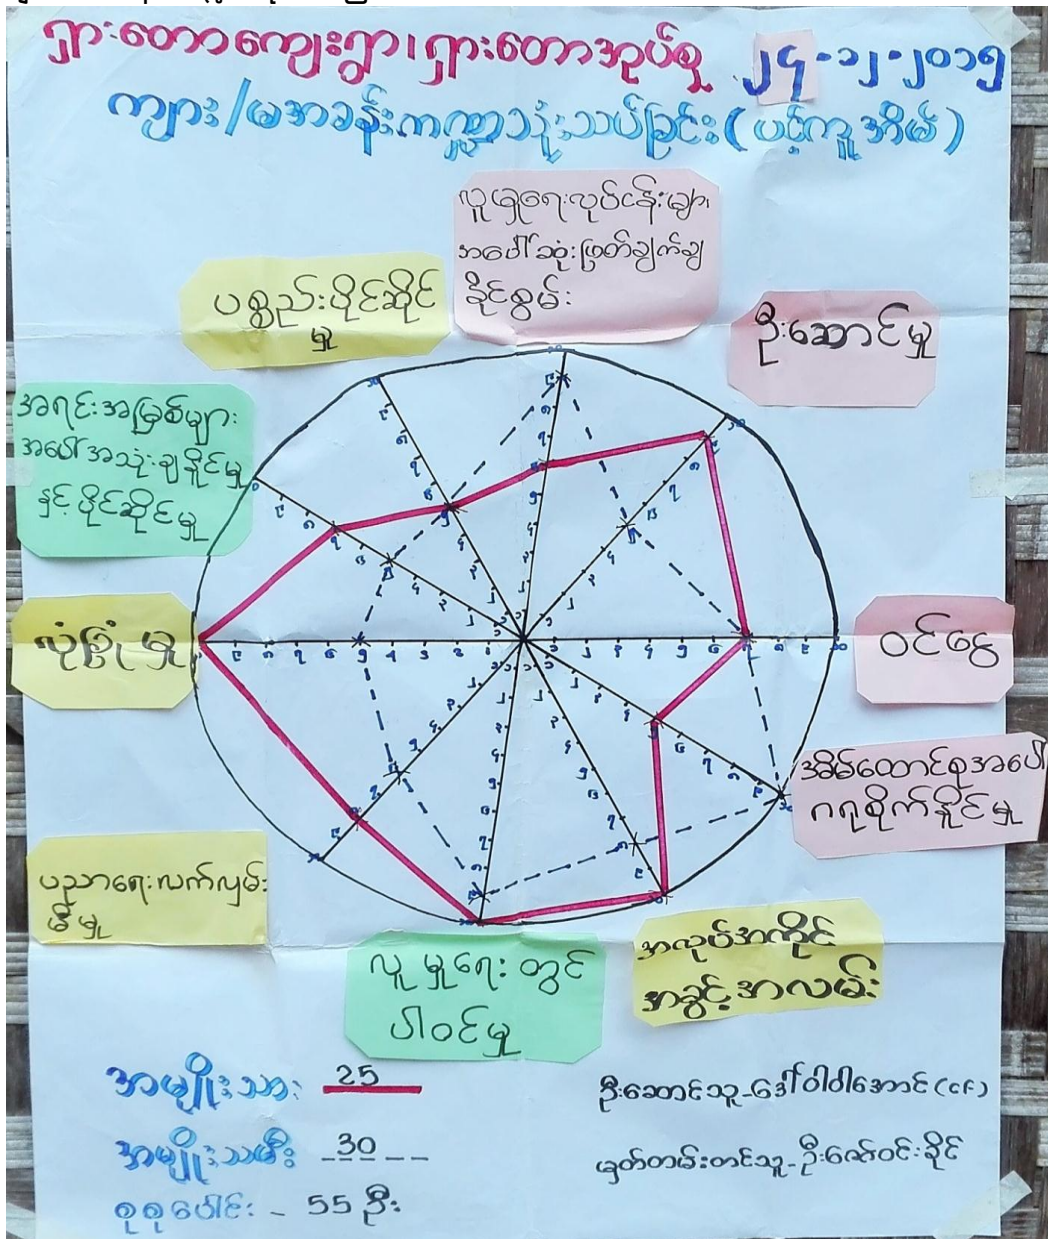 ရှားတောကျေးရွာ၊ ရှားတောအုပ်စု ၂၄-၁၂-၂၀၁၅
ကျား/မအခန်းကဏ္ဍသုံးသပ်ခြင်း (ပင့်ကူအိမ်)
လူမှုရေးလုပ်ငန်းများ
အပေါ်ဆုံးဖြတ်ချက်ချ
နိုင်စွမ်း
ပစ္စည်းပိုင်ဆိုင်
မှု
ဦးဆောင်မှု
အရင်းအမြစ်များ
အပေါ်အသုံးချနိုင်မှု
နှင့်ပိုင်ဆိုင်မှု
လုံခြုံမှု
ဝင်ငွေ
အိမ်ထောင်စုအပေါ်
ဂရုစိုက်နိုင်မှု
ပညာရေးလက်လှမ်း
မီမှု
လူမှုရေးတွင်
ပါဝင်မှု
အလုပ်အကိုင်
အခွင့်အလမ်း
အမျိုးသား 25
အမျိုးသမီး - 30 - -
စုစုပေါင်း - 55 ဦး
ဦးဆောင်သူ - ဒေါ်ဝါဝါအောင် (CF)
မှတ်တမ်းတင်သူ - ဦးဇော်ဝင်းခိုင်